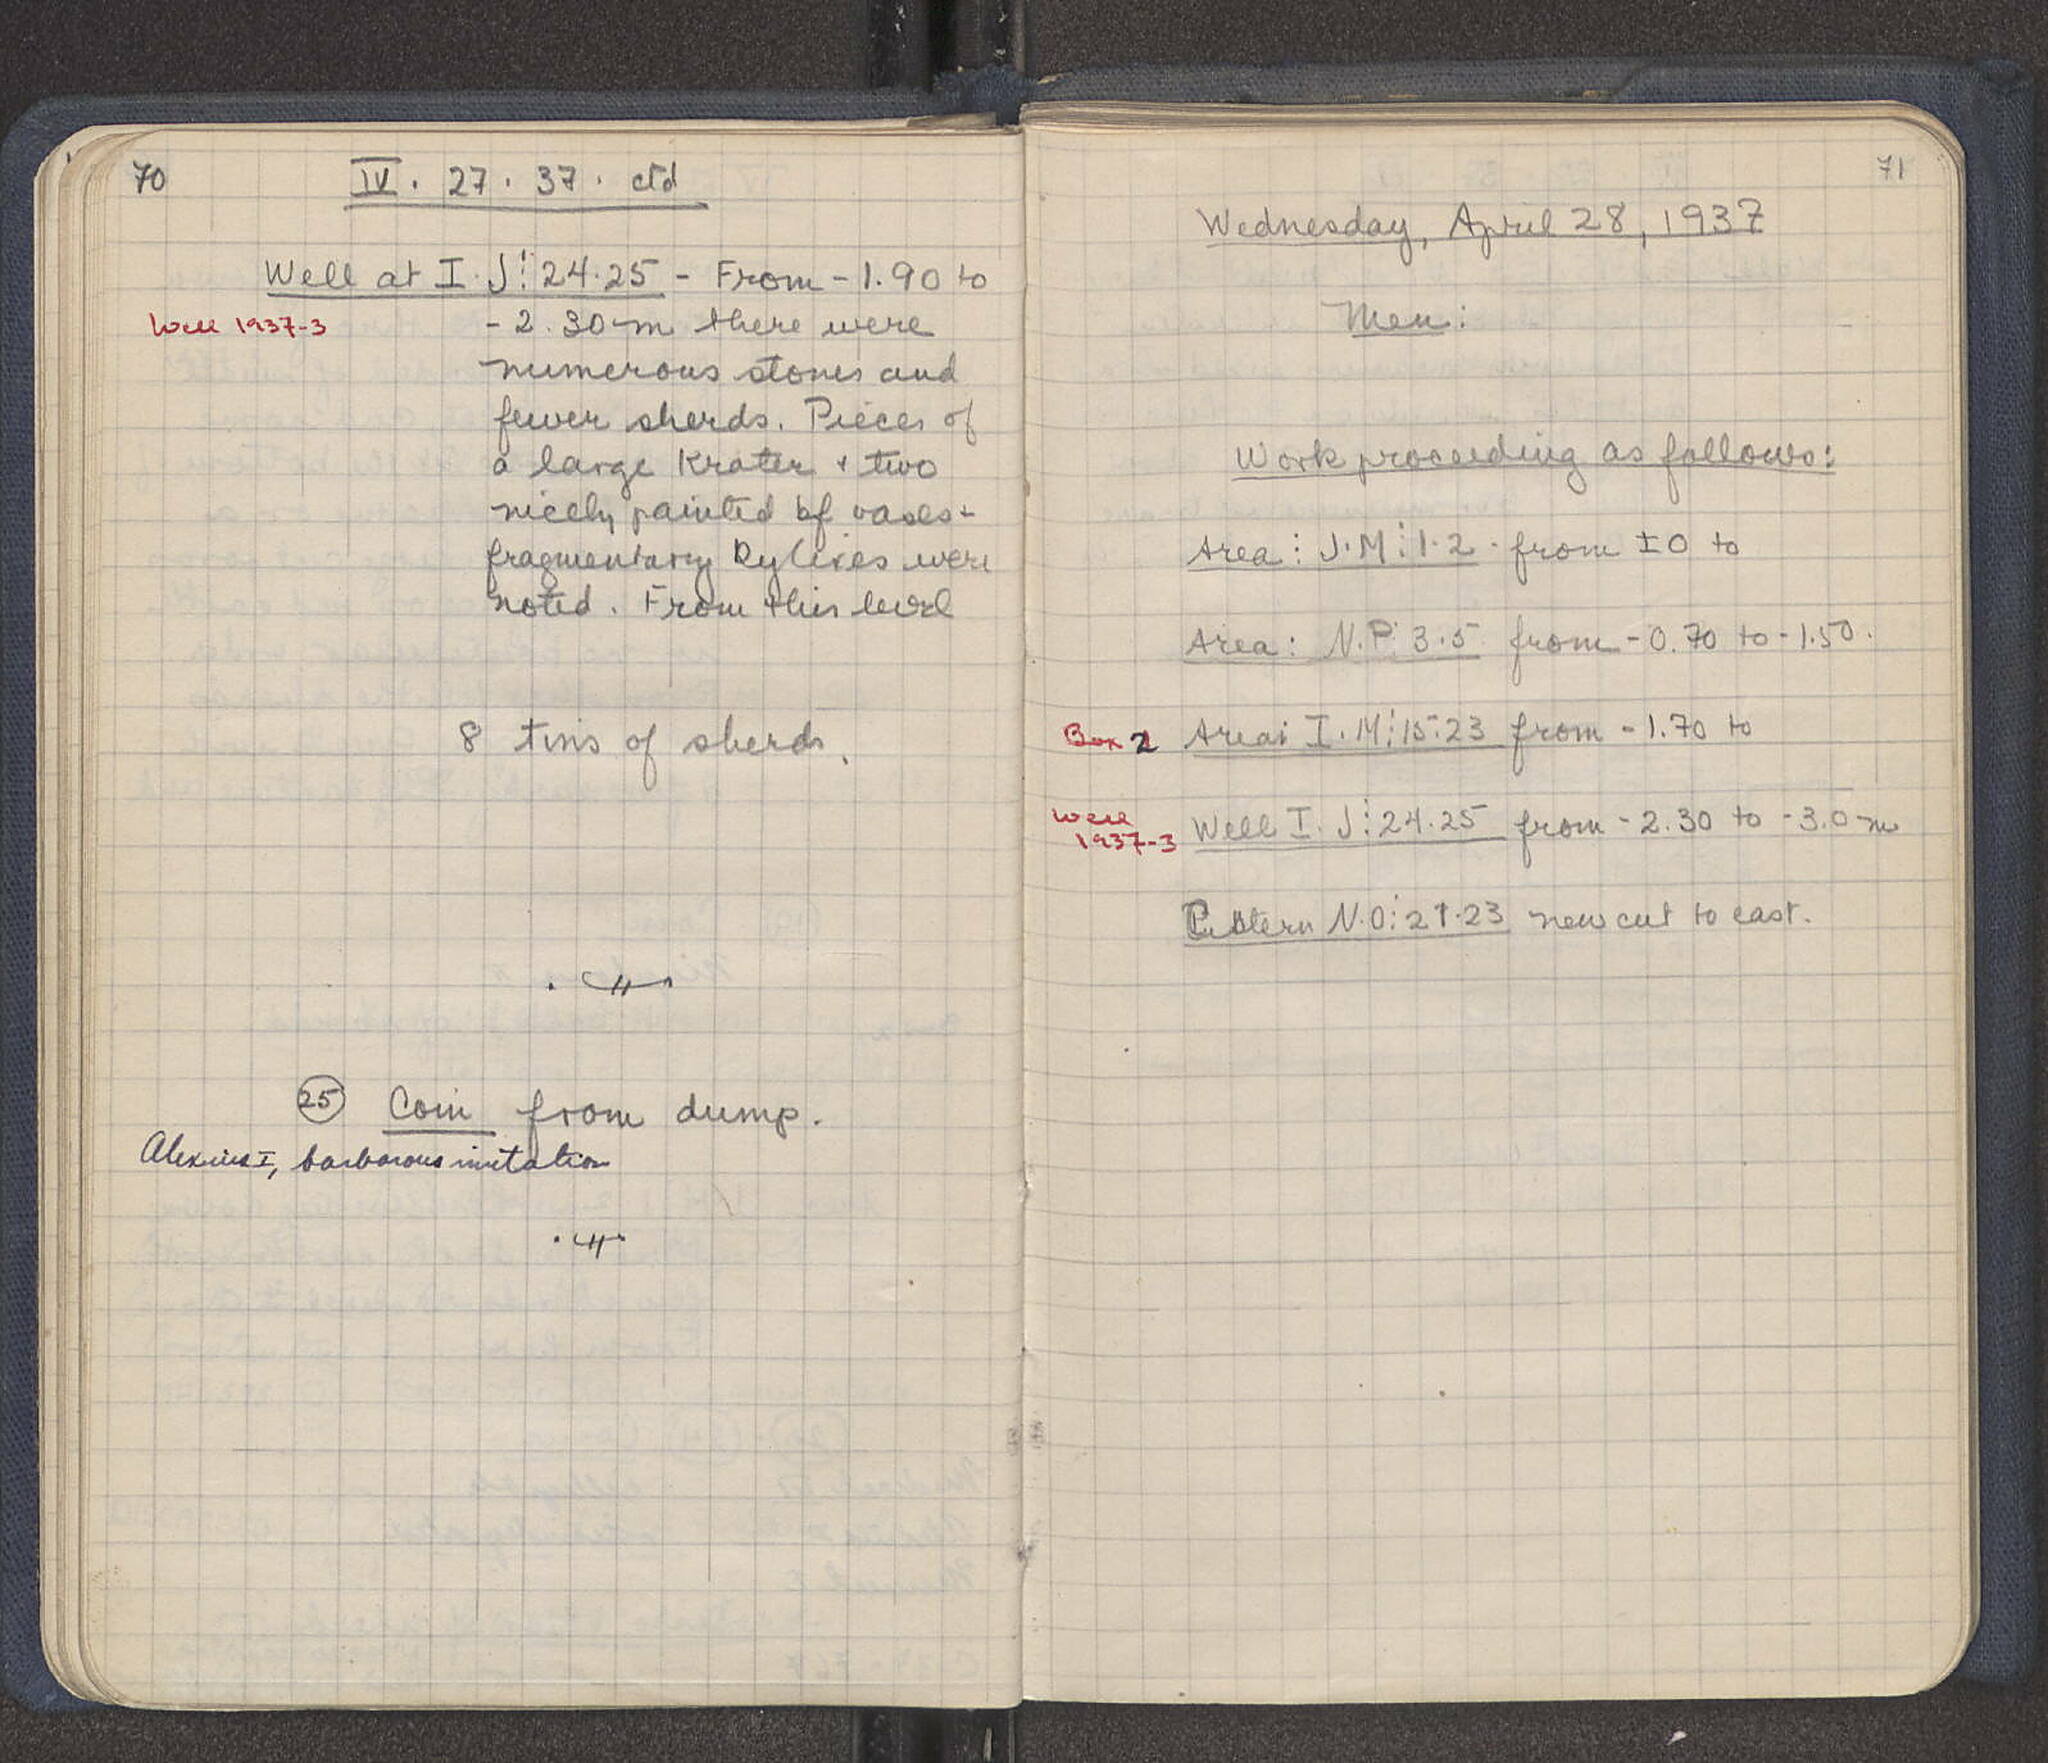 70
IV . 27 . 37 . ctd
Well at I . J : 24 . 25 - From - 1.90 to
Well 1937-3
- 2.30 m there were
numerous stones and
fewer sherds. Pieces of
a large Krater + two
nicely painted bf vases +
fragmentary Kylixes were
noted. From this level
8 tins of sherds.
25 Coin from dump.
Alexius I, barbarous imitation
71
Wednesday, April 28, 1937
Men:
Work proceeding as follows:
Area : J . M : 1 . 2 . from ± 0 to
Area : N . P : 3 . 5 from - 0.70 to - 1.50.
Box 2 Area: I . M : 15 . 23 from - 1.70 to
Well
1937-3
Well I . J : 24 . 25 from - 2.30 to - 3.0 m
Cistern N . O : 21 . 23 new cut to east.